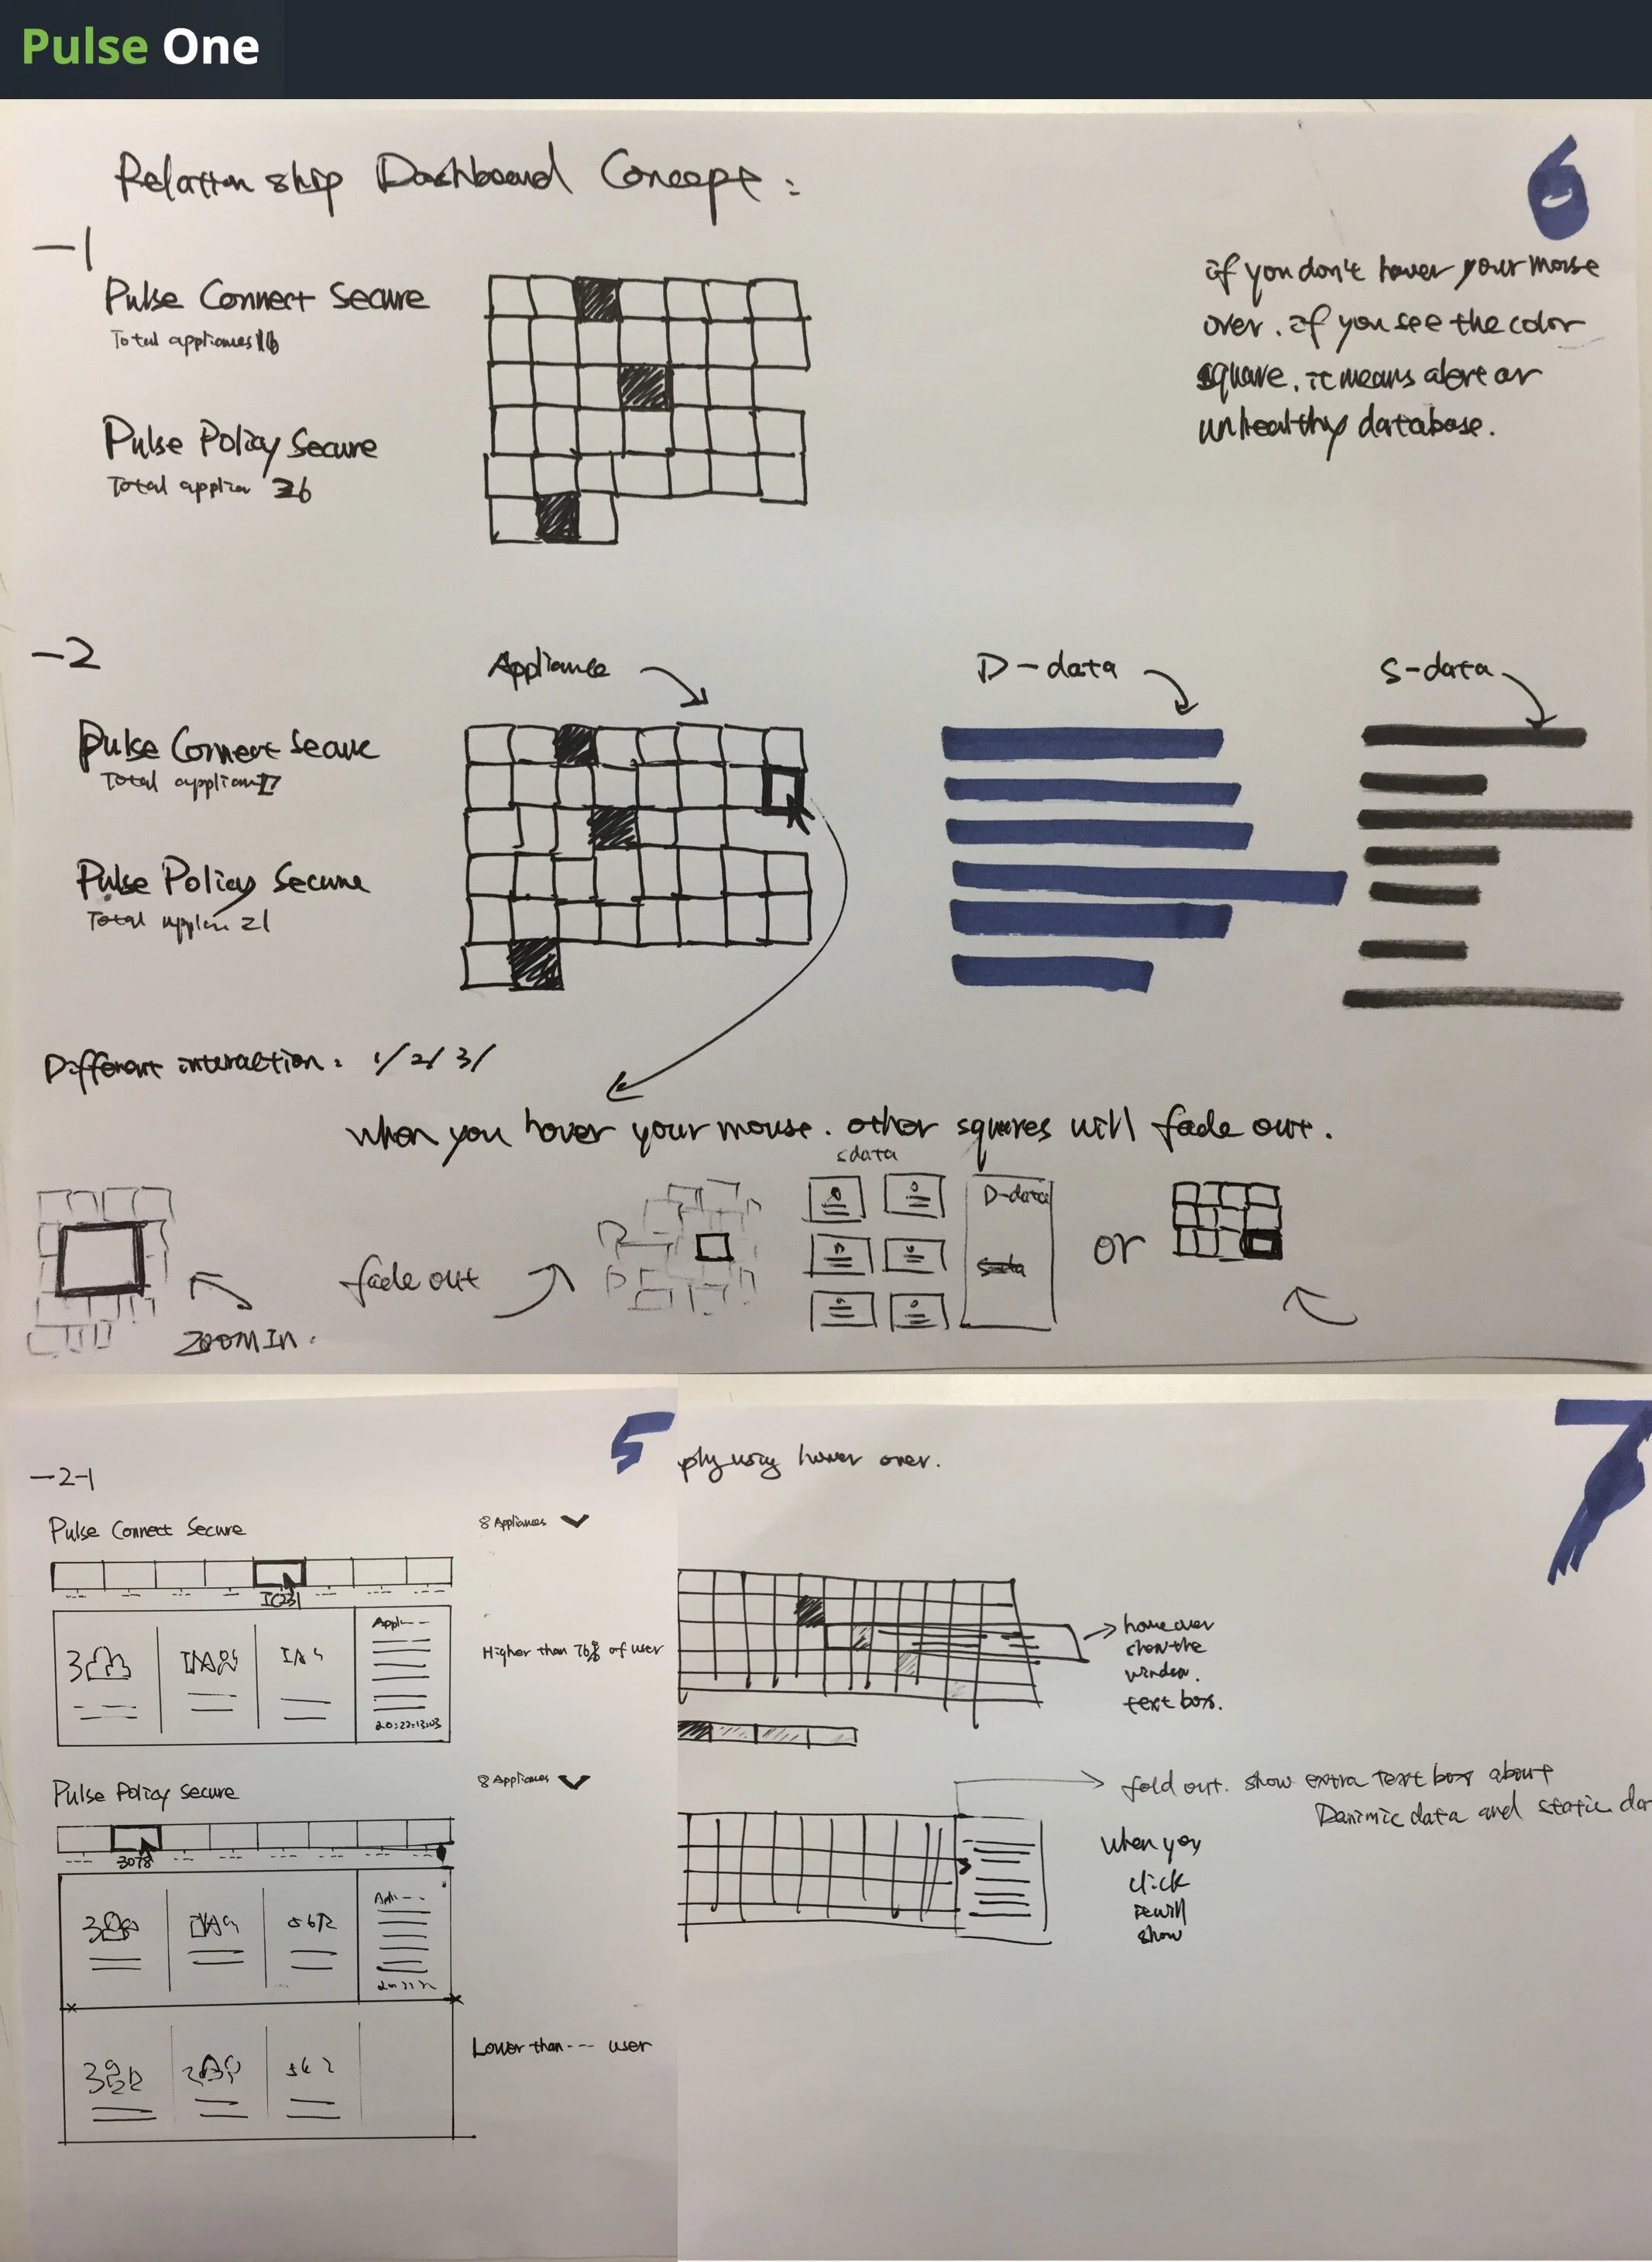 Pulse One
Relationship Dashboard Concept:
6
-1
Pulse Connect Secure
Total appliances 16
Pulse Policy Secure
Total 26
if you don't hover your mouse
over. if you see the color
square. it means alert or
unhealthy database.
-2
Appliance
D-data
S-data
Pulse Connect Secure
Total
Pulse Policy Secure
Total 21
Different interaction: 1/ 2/ 3/
when you hover your mouse. other squares will fade out.
sdata
D-data
or
fade out
ZOOM IN.
5
-2-1
Pulse Connect Secure
8 Appliances
IC231
Appl---
Higher than 76% of user
20:22:13:03
Pulse Policy Secure
8 Appliances
3078
Lower than --- user
7
hover over.
hover over
show the
window.
text box.
fold out. show extra text box about
Danimic data and static
when you
click
show